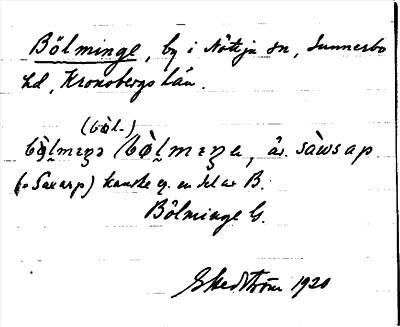 Bölminge, by i Nöttja sn, Sunnerbo
hd, Kronobergs län.
(bø̀l-)
bø̀lmɪŋə bø̀lmɪŋa, äv. sàwsap
(= Saxarp) kanske eg. en del av B.
Bölminge G.
1920